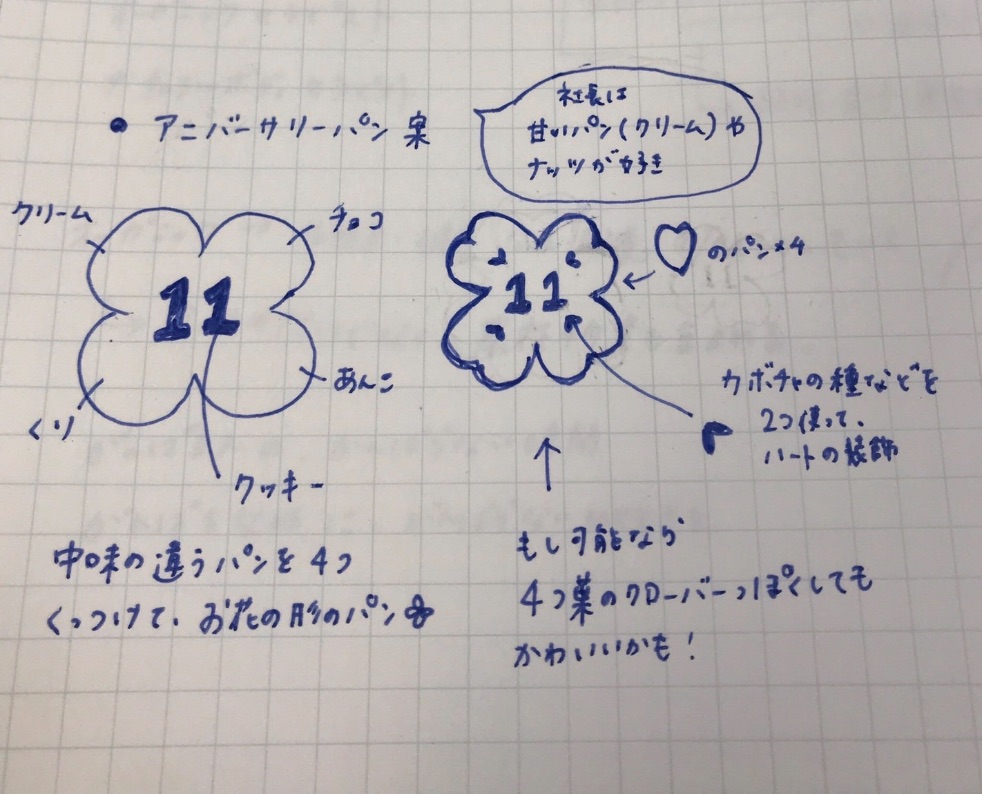 • アニバーサリーパン 案
社長は
甘いパン(クリーム)や
ナッツが好き
クリーム
チョコ
11
あんこ
くり
クッキー
中味の違うパンを4つ
くっつけて、お花の形のパン
11
♡のパン×4
カボチャの種などを
2つ使って、
ハートの装飾
↑
もし可能なら
4つ葉のクローバーっぽくしても
かわいいかも!